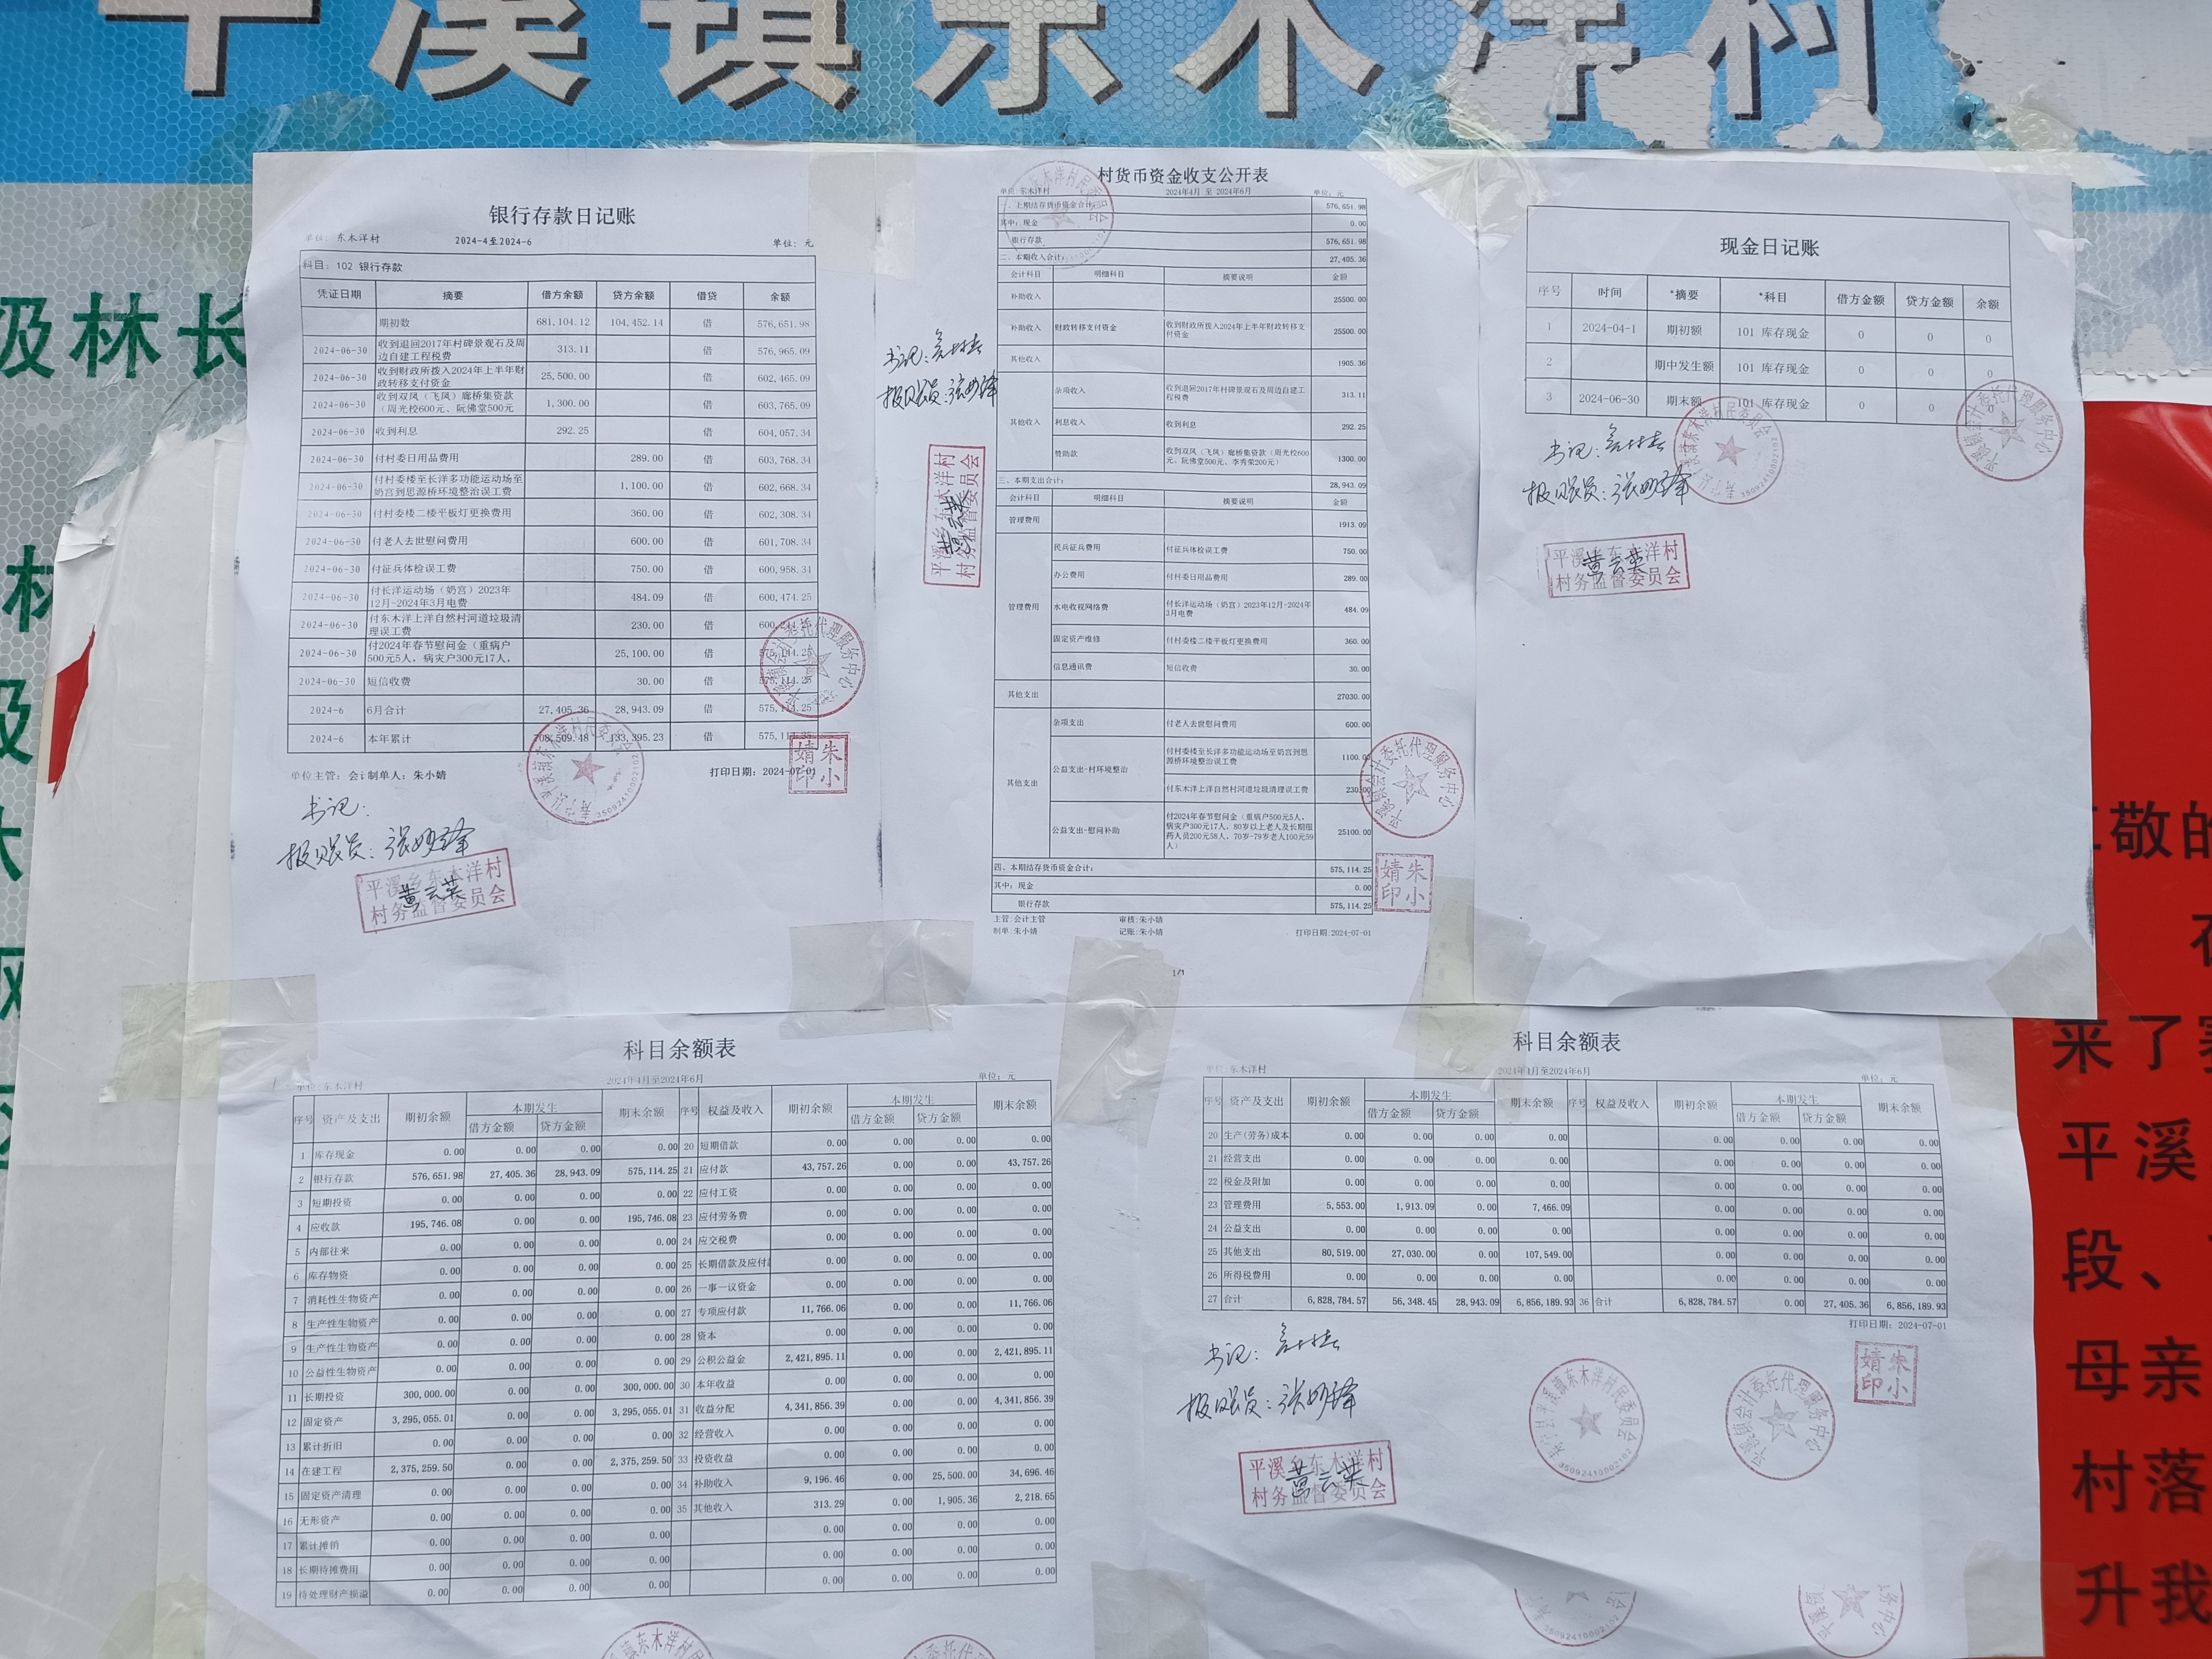 平溪镇东木洋村
级林长
银行存款日记账
单位: 东木洋村 2024-4至2024-6 单位: 元
科目: 102 银行存款
凭证日期 摘要 借方余额 贷方余额 借贷 余额
期初数 681,104.12 104,452.14 借 576,651.98
2024-06-30 收到退回2017年村碑景观石及周边自建工程税费 313.11 借 576,965.09
2024-06-30 收到财政所拨入2024年上半年财政转移支付资金 25,500.00 借 602,465.09
2024-06-30 收到双凤（飞凤）廊桥集资款（周光校600元、阮佛堂500元 1,300.00 借 603,765.09
2024-06-30 收到利息 292.25 借 604,057.34
2024-06-30 付村委日用品费用 289.00 借 603,768.34
2024-06-30 付村委楼至长洋多功能运动场至奶宫到思源桥环境整治误工费 1,100.00 借 602,668.34
2024-06-30 付村委楼二楼平板灯更换费用 360.00 借 602,308.34
2024-06-30 付老人去世慰问费用 600.00 借 601,708.34
2024-06-30 付征兵体检误工费 750.00 借 600,958.34
2024-06-30 付长洋运动场（奶宫）2023年12月-2024年3月电费 484.09 借 600,474.25
2024-06-30 付东木洋上洋自然村河道垃圾清理误工费 230.00 借
2024-06-30 付2024年春节慰问金（重病户500元5人，病灾户300元17人， 25,100.00 借 575,144.25
2024-06-30 短信收费 30.00 借 575,114.25
2024-6 6月合计 27,405.36 28,943.09 借 575,114.25
2024-6 本年累计 708,509.48 133,395.23 借 575,114.25
单位主管: 会计制单人: 朱小婧 打印日期: 2024-07-01
书记:
报账员:
平溪乡东木洋村
村务监督委员会
黄云英
平溪镇会计委托代理服务中心
寿宁县平溪镇东木洋村民委员会
35092410002102
朱小婧印
村货币资金收支公开表
单位: 东木洋村 2024年4月 至 2024年6月 单位: 元
一、上期结存货币资金合计: 576,651.98
其中: 现金 0.00
银行存款 576,651.98
二、本期收入合计: 27,405.36
会计科目 明细科目 摘要说明 金额
补助收入 25500.00
补助收入 财政转移支付资金 收到财政所拨入2024年上半年财政转移支付资金 25500.00
其他收入 1905.36
其他收入 杂项收入 收到退回2017年村碑景观石及周边自建工程税费 313.11
利息收入 收到利息 292.25
赞助款 收到双凤（飞凤）廊桥集资款（周光校600元、阮佛堂500元、李秀荣200元） 1300.00
三、本期支出合计: 28,943.09
会计科目 明细科目 摘要说明 金额
管理费用 1913.09
管理费用 民兵征兵费用 付征兵体检误工费 750.00
办公费用 付村委日用品费用 289.00
水电收视网络费 付长洋运动场（奶宫）2023年12月-2024年3月电费 484.09
固定资产维修 付村委楼二楼平板灯更换费用 360.00
信息通讯费 短信收费 30.00
其他支出 27030.00
其他支出 杂项支出 付老人去世慰问费用 600.00
公益支出-村环境整治 付村委楼至长洋多功能运动场至奶宫到思源桥环境整治误工费 1100.00
付东木洋上洋自然村河道垃圾清理误工费 230.00
公益支出-慰问补助 付2024年春节慰问金（重病户500元5人，病灾户300元17人，80岁以上老人及长期服药人员200元58人，70岁-79岁老人100元59人） 25100.00
四、本期结存货币资金合计: 575,114.25
其中: 现金 0.00
银行存款 575,114.25
主管: 会计主管 审核: 朱小婧
制单: 朱小婧 记账: 朱小婧 打印日期: 2024-07-01
1/1
书记:
报账员:
平溪乡东木洋村
村务监督委员会
黄云英
平溪镇会计委托代理服务中心
朱小婧印
现金日记账
序号 时间 *摘要 *科目 借方金额 贷方金额 余额
1 2024-04-1 期初额 101 库存现金 0 0 0
2 期中发生额 101 库存现金 0 0 0
3 2024-06-30 期末额 101 库存现金 0 0 0
书记:
报账员:
平溪乡东木洋村
村务监督委员会
黄云英
寿宁县平溪镇东木洋村民委员会
35092410002102
平溪镇会计委托代理服务中心
科目余额表
单位: 东木洋村 2024年4月至2024年6月 单位: 元
序号 资产及支出 期初余额 本期发生 期末余额 序号 权益及收入 期初余额 本期发生 期末余额
借方金额 贷方金额 借方金额 贷方金额
1 库存现金 0.00 0.00 0.00 0.00 20 短期借款 0.00 0.00 0.00 0.00
2 银行存款 576,651.98 27,405.36 28,943.09 575,114.25 21 应付款 43,757.26 0.00 0.00 43,757.26
3 短期投资 0.00 0.00 0.00 0.00 22 应付工资 0.00 0.00 0.00 0.00
4 应收款 195,746.08 0.00 0.00 195,746.08 23 应付劳务费 0.00 0.00 0.00 0.00
5 内部往来 0.00 0.00 0.00 0.00 24 应交税费 0.00 0.00 0.00 0.00
6 库存物资 0.00 0.00 0.00 0.00 25 长期借款及应付 0.00 0.00 0.00 0.00
7 消耗性生物资产 0.00 0.00 0.00 0.00 26 一事一议资金 0.00 0.00 0.00 0.00
8 生产性生物资产 0.00 0.00 0.00 0.00 27 专项应付款 11,766.06 0.00 0.00 11,766.06
9 生产性生物资产 0.00 0.00 0.00 0.00 28 资本 0.00 0.00 0.00 0.00
10 公益性生物资产 0.00 0.00 0.00 0.00 29 公积公益金 2,421,895.11 0.00 0.00 2,421,895.11
11 长期投资 300,000.00 0.00 0.00 300,000.00 30 本年收益 0.00 0.00 0.00 0.00
12 固定资产 3,295,055.01 0.00 0.00 3,295,055.01 31 收益分配 4,341,856.39 0.00 0.00 4,341,856.39
13 累计折旧 0.00 0.00 0.00 0.00 32 经营收入 0.00 0.00 0.00 0.00
14 在建工程 2,375,259.50 0.00 0.00 2,375,259.50 33 投资收益 0.00 0.00 0.00 0.00
15 固定资产清理 0.00 0.00 0.00 0.00 34 补助收入 9,196.46 0.00 25,500.00 34,696.46
16 无形资产 0.00 0.00 0.00 0.00 35 其他收入 313.29 0.00 1,905.36 2,218.65
17 累计摊销 0.00 0.00 0.00 0.00 0.00 0.00 0.00 0.00
18 长期待摊费用 0.00 0.00 0.00 0.00 0.00 0.00 0.00 0.00
19 待处理财产损溢 0.00 0.00 0.00 0.00 0.00 0.00 0.00 0.00
科目余额表
单位: 东木洋村 2024年4月至2024年6月 单位: 元
序号 资产及支出 期初余额 本期发生 期末余额 序号 权益及收入 期初余额 本期发生 期末余额
借方金额 贷方金额 借方金额 贷方金额
20 生产(劳务)成本 0.00 0.00 0.00 0.00 0.00 0.00 0.00 0.00
21 经营支出 0.00 0.00 0.00 0.00 0.00 0.00 0.00 0.00
22 税金及附加 0.00 0.00 0.00 0.00 0.00 0.00 0.00 0.00
23 管理费用 5,553.00 1,913.09 0.00 7,466.09 0.00 0.00 0.00 0.00
24 公益支出 0.00 0.00 0.00 0.00 0.00 0.00 0.00 0.00
25 其他支出 80,519.00 27,030.00 0.00 107,549.00 0.00 0.00 0.00 0.00
26 所得税费用 0.00 0.00 0.00 0.00 0.00 0.00 0.00 0.00
27 合计 6,828,784.57 56,348.45 28,943.09 6,856,189.93 36 合计 6,828,784.57 0.00 27,405.36 6,856,189.93
打印日期: 2024-07-01
书记:
报账员:
平溪乡东木洋村
村务监督委员会
黄云英
寿宁县平溪镇东木洋村民委员会
35092410002102
平溪镇会计委托代理服务中心
朱小婧印
敬的
来了
平溪
段、
母亲
村落
升我